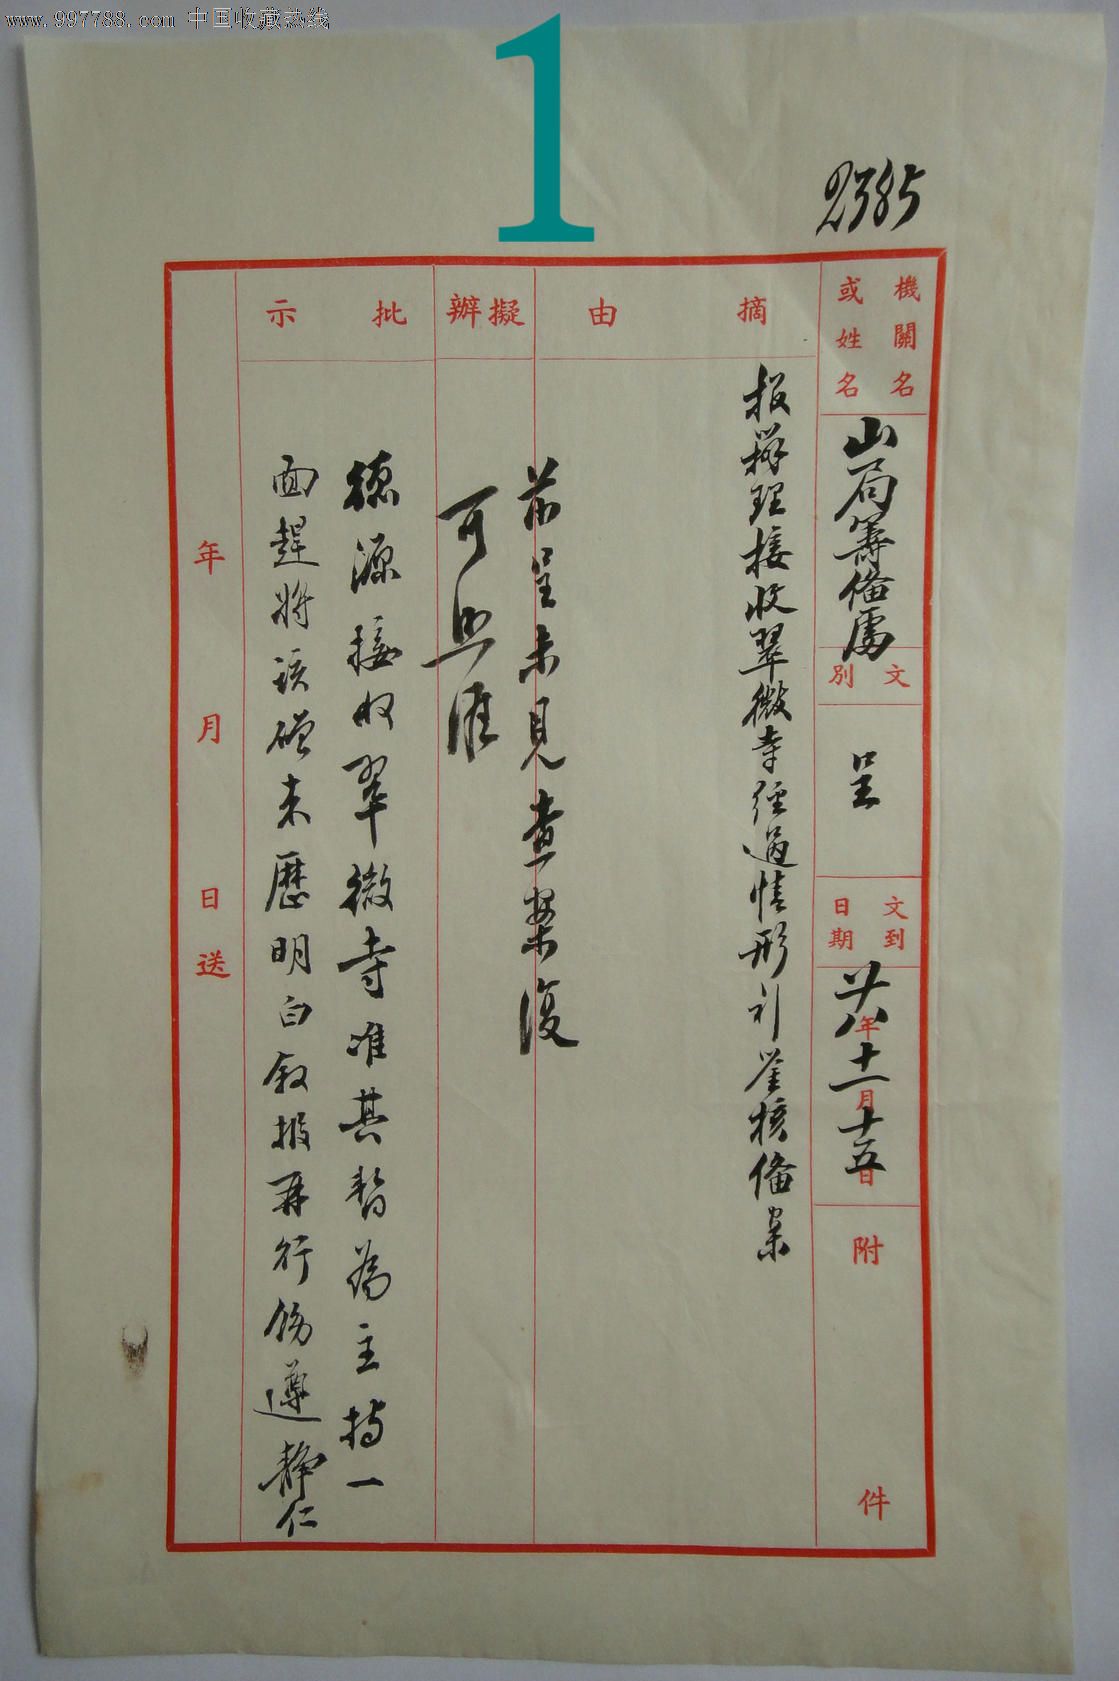 www.997788.com 中国收藏热线
1
2385
機關名
或姓名
山局籌備處
文別
呈
文到
日期
廿八年十一月十五日
附件
摘由
报辦理接收翠微寺经過情形祈鉴核備案
擬辦
前呈未見查案復
可照准
批示
德源接收翠微寺准其暫為主持一
面趕將该僧来歷明白叙报再行饬遵 静仁
年月日送